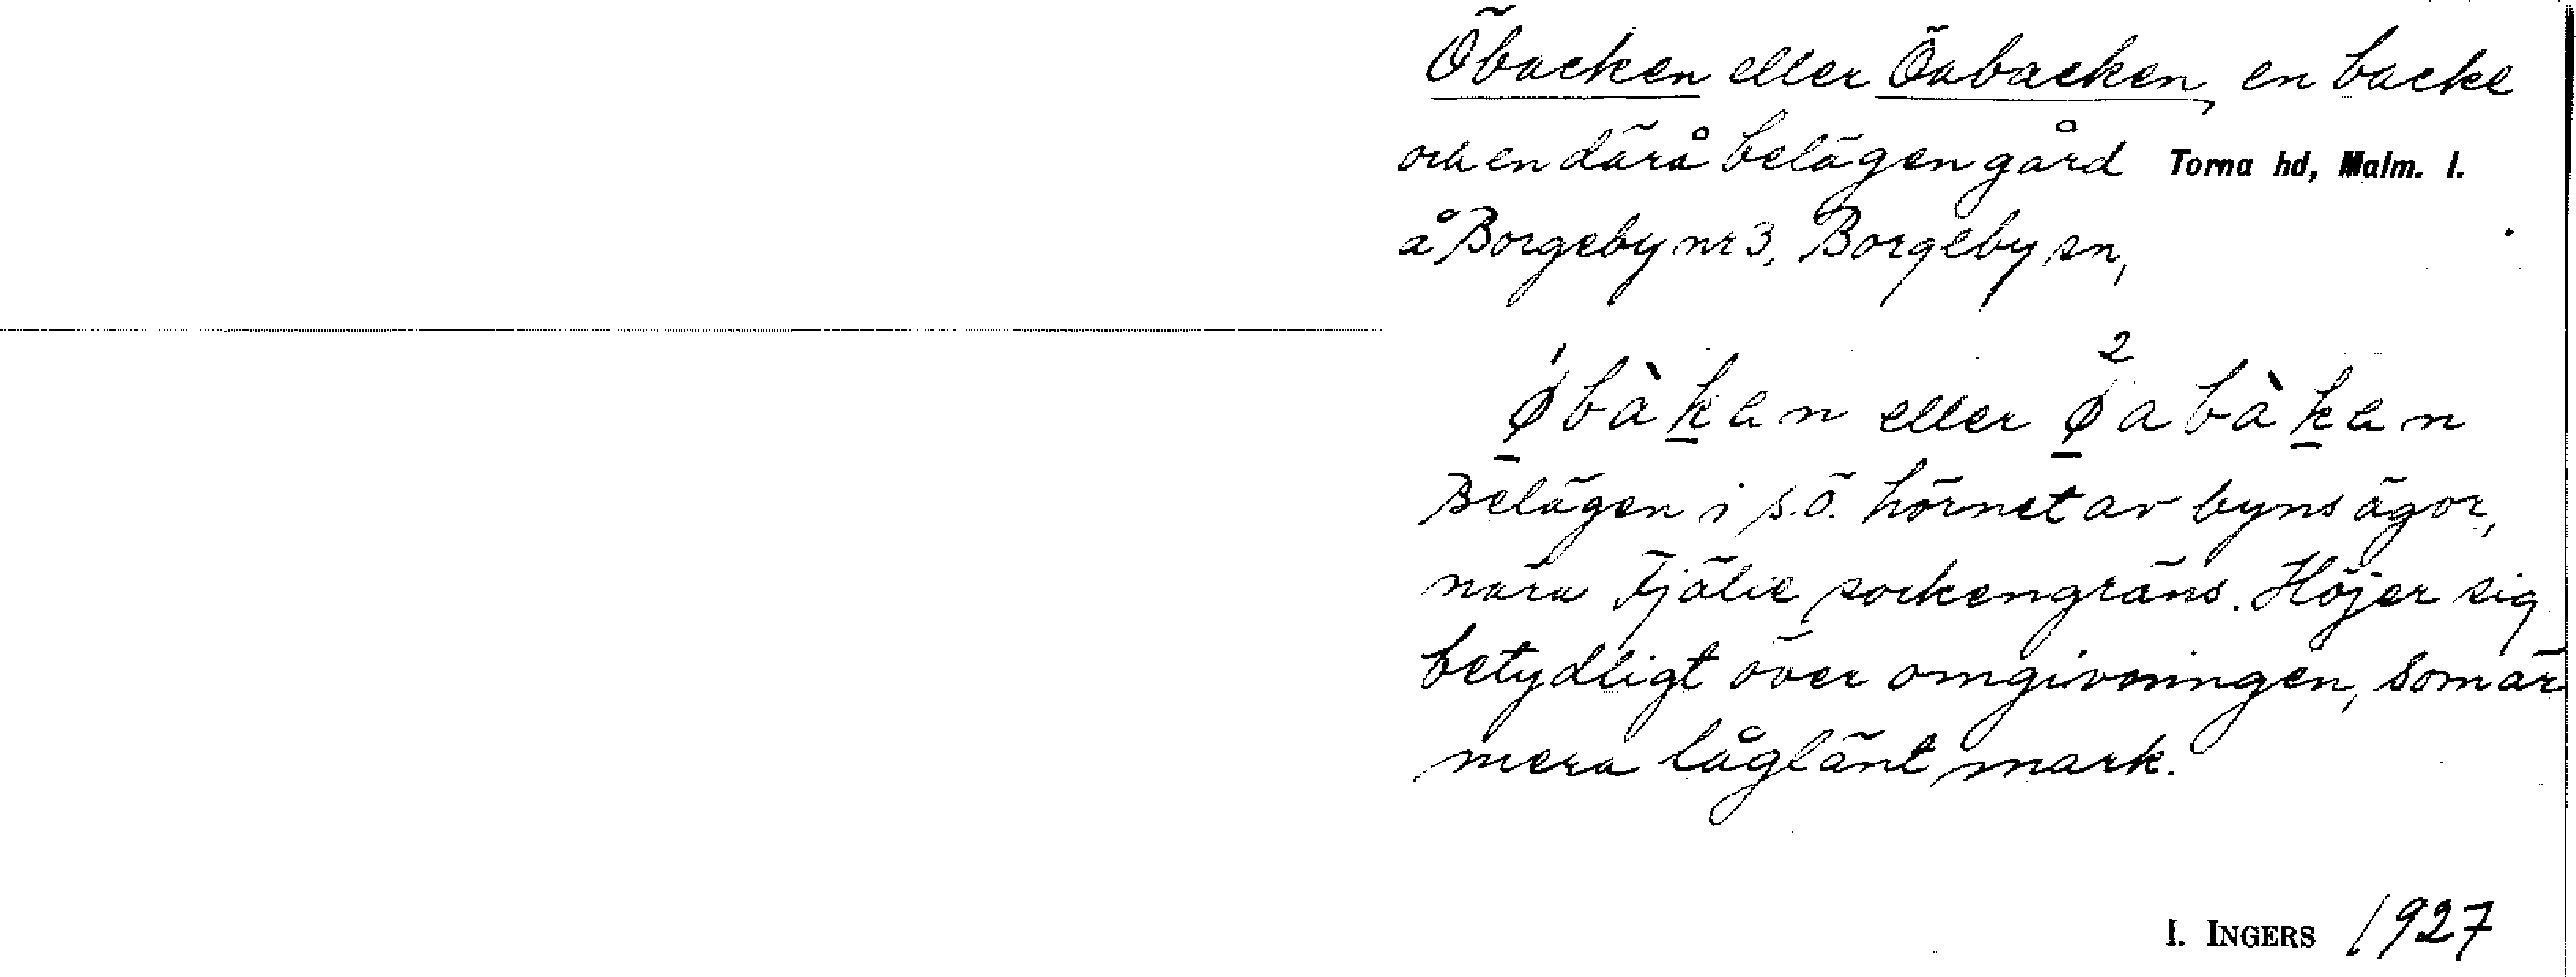 Öbacken eller Öabacken, en backe
och en därå belägen gård Torna hd, Malm. l.
å Borgeby nr 3, Borgeby sn,
ǿbàken eller ø²abàken
Belägen i s.ö. hörnet av byns ägor,
nära Fjälie sockengräns. Höjer sig
betydligt över omgivningen, som är
mera låglänt mark.
I. INGERS 1927